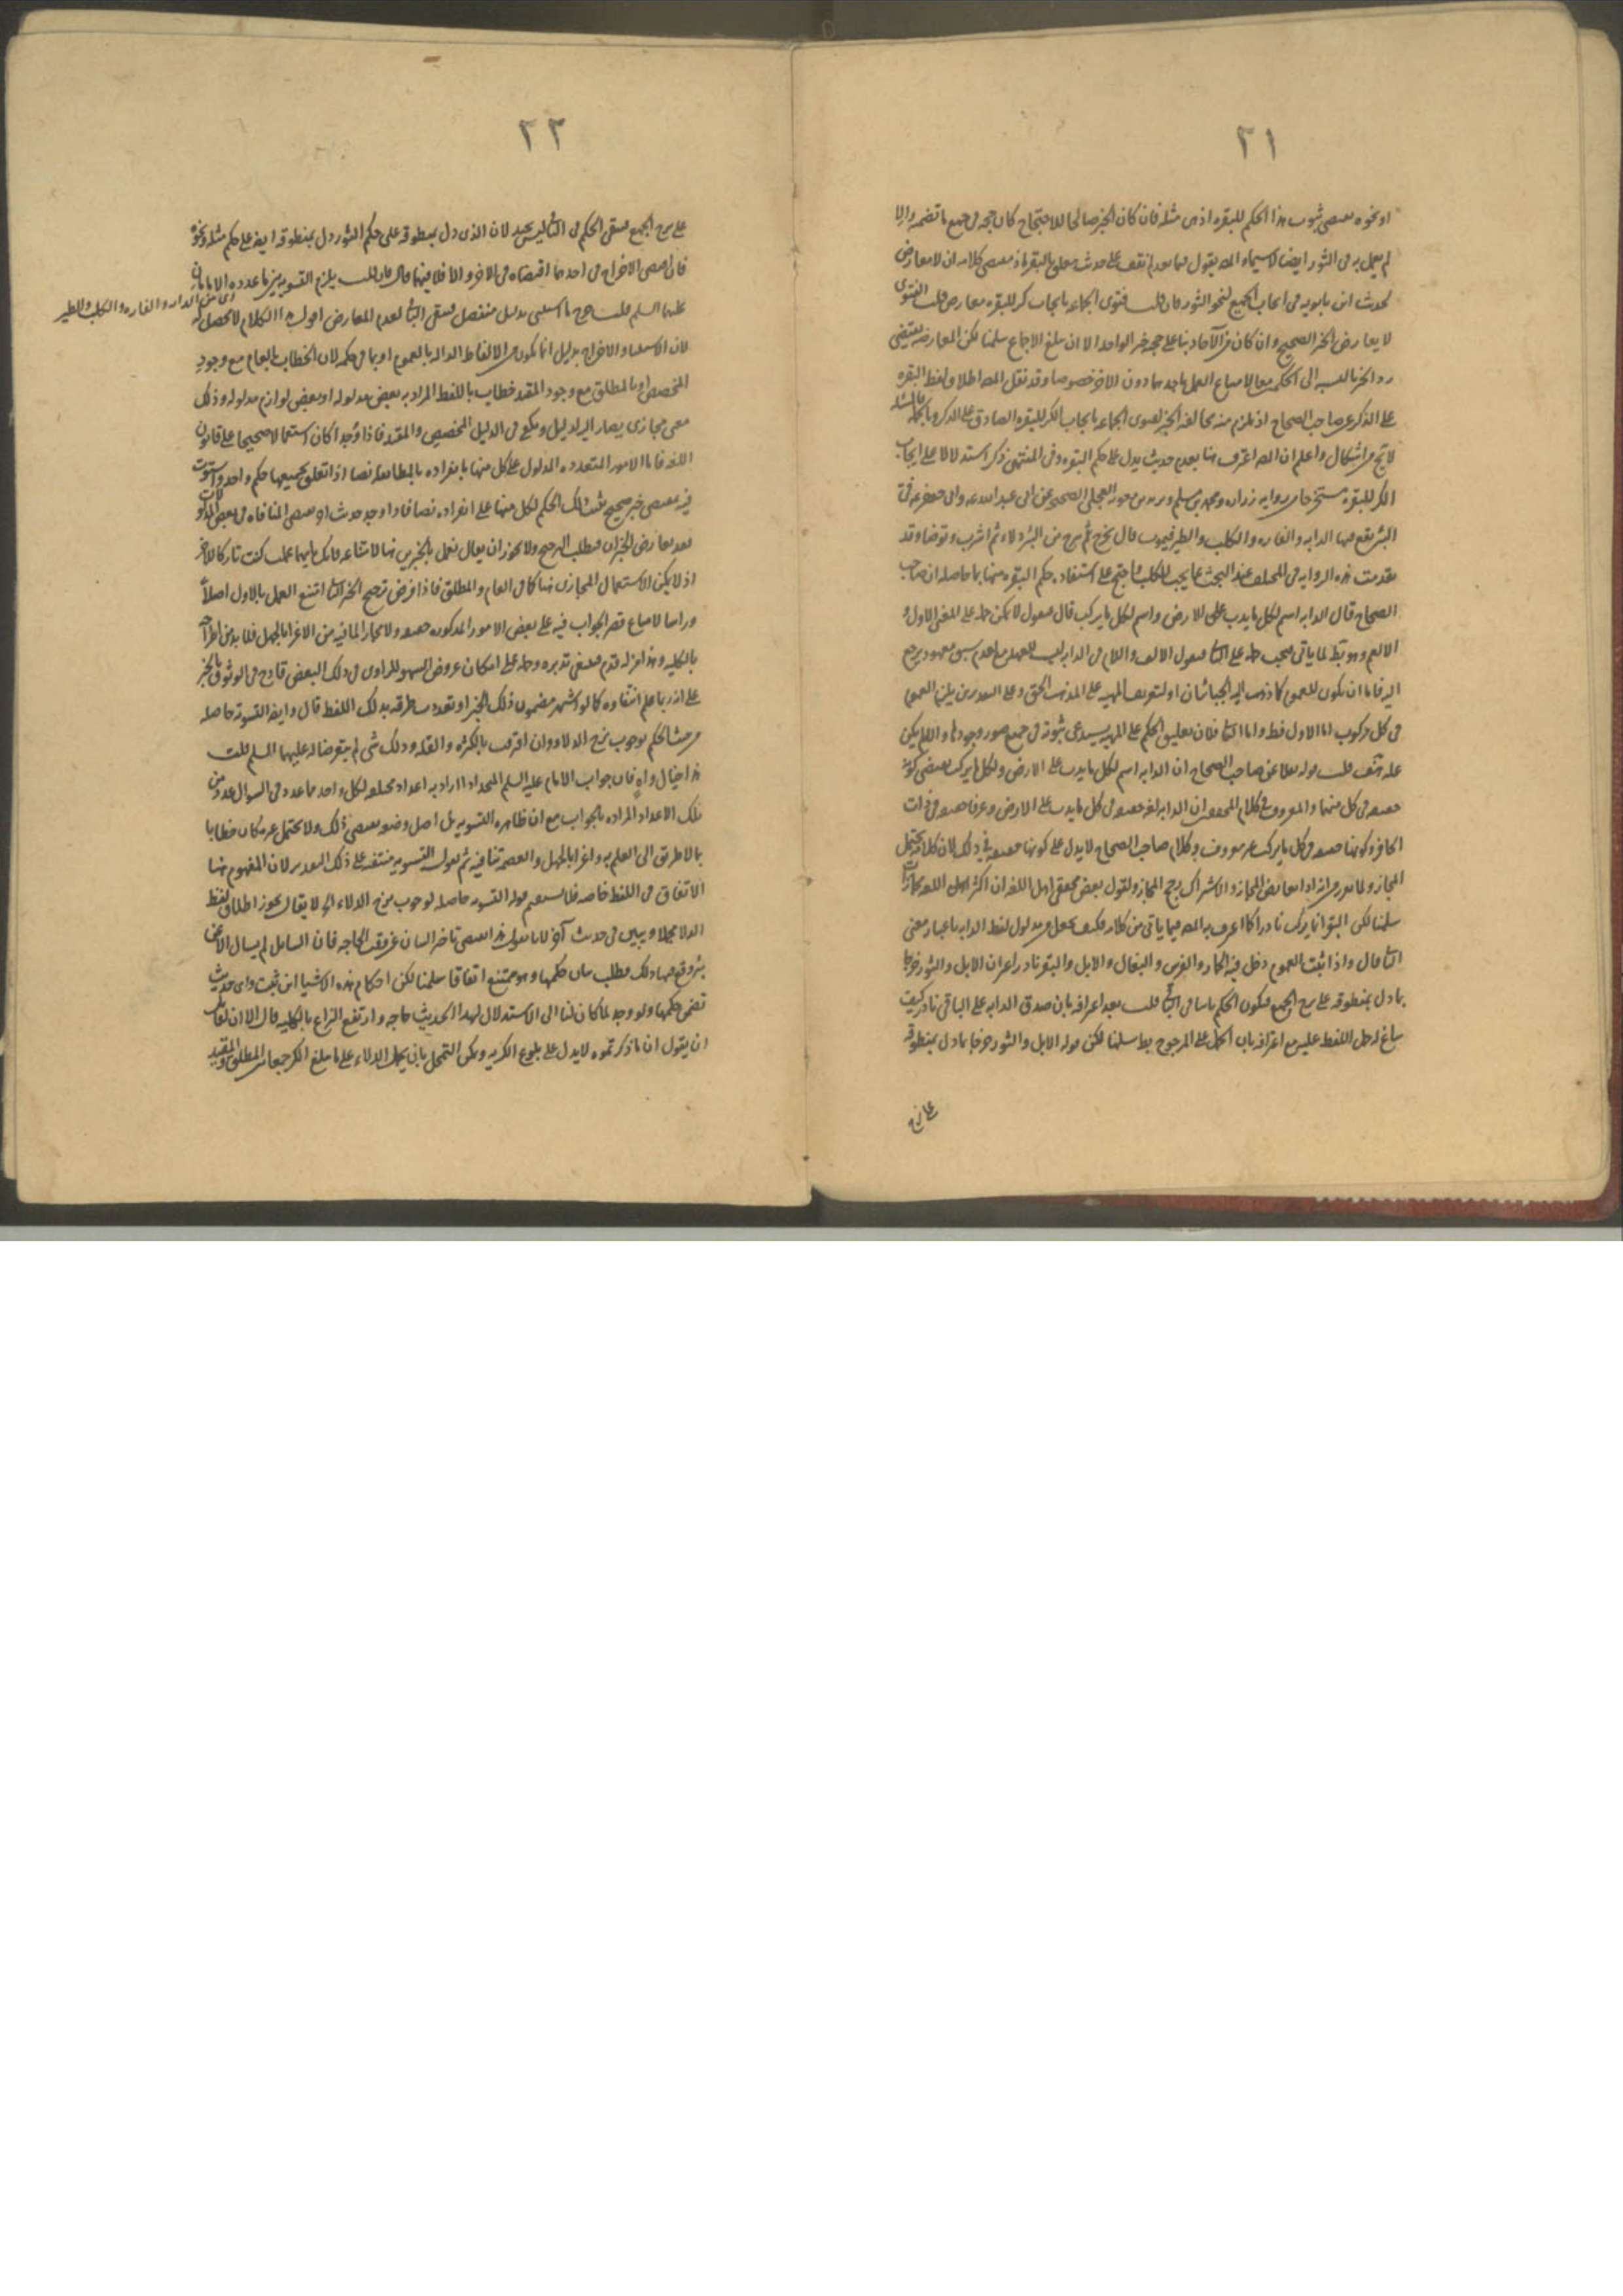 ٢١
او نحوه ثبوت هذا الحكم للبقره اذ هى مثله فان كان الخبر صالحا للاحتجاج كان حجه فى جميع ما تضمنه والا
لم يعمل به فى الثور ايضا لاسيما والمص يقول فيما بعد لم نقف على حديث يتعلق بالبقر كلامه ان لا معارض
لحديث ابن بابويه فى ايجاب الجميع لنحو الثور فان قلت فتوى الجماعه بايجاب كر للبقره معارض قلت الفتوى
لا يعارض الخبر الصحيح وان كان من الآحاد بنا على حجيه خبر الواحد الا ان يبلغ الاجماع سلمنا لكن المعارضه يقتضى
رد الخبر بالنسبه الى الحكمين معا لامتناع العمل باحدهما دون الاخر خصوصا وقد نقل المص اطلاق لفظ البقره
على الذكر عن صاحب الصحاح اذ يلزم منه مخالفه الخبر لفتوى الجماعه بايجاب الكر للبقره الصادق على الذكر وبالجمله فالمسئله
لا تخ من اشكال واعلم ان المص اعترف هنا بعدم حديث يدل على حكم البقره وفى المنتهى ذكر استدلالا على ايجاب
الكر للبقره مستخرجا من روايه زراره ومحمد بن مسلم وبريد بن معويه العجلى الصحيح عن ابى عبد الله وابى جعفر ع فى
البئر يقع فيها الدابه والفاره والكلب والطير فيموت قال يخرج ثم ينزح من البئر دلاء ثم اشرب وتوضا وقد
تقدمت هذه الروايه فى المختلف عند البحث عما يجب للكلب واحتج على استفاده حكم البقره منها بما حاصله ان صاحب
الصحاح قال الدابه اسم لكل ما يدب على الارض واسم لكل ما يركب قال فنقول لا يمكن حمله على المعنى الاول و
الا لعم وهو بط لما ياتى فيجب حمله على الثانى فنقول الالف واللام فى الدابه ليست للعهد لعدم سبق معهود يرجع
اليه فاما ان يكون للعموم كما ذهب اليه الجبائيان او لتعريف المهيه على المذهب الحق وعلى التقديرين يلزم العموم
فى كل مركوب اما الاول فظ واما الثانى فلان تعليق الحكم على المهيه يستدعى ثبوته فى جميع صور وجودها والا لم يكن
عله هف قلت قوله نقلا عن صاحب الصحاح ان الدابه اسم لكل ما يدب على الارض ولكل ما يركب يقتضى كونه
حقيقه فى كل منهما والمعروف فى كلام المحققين ان الدابه لغه حقيقه فى كل ما يدب على الارض وعرفا حقيقه فى ذات
الحافر وكونها حقيقه فى كل ما يركب غير معروف وكلام صاحب الصحاح لا يدل على كونها حقيقه فى ذلك لان كلامه يحتمل
المجاز ولما تقرر من انه اذا تعارض المجاز والاشتراك رجح المجاز ولقول بعض محققى اهل اللغه ان اكثر اللغه مجازات
سلمنا لكن البقر انما يركب نادرا كما اعترف به المص فيما ياتى من كلامه فكيف يجعل من مدلول لفظ الدابه باعتبار معنى
الثانى قال واذا ثبت العموم دخل فيه الحمار والفرس والبغال والابل والبقر نادرا غير ان الابل والثور خرجا
بما دل بمنطوقه على نزح الجميع فيكون الحكم ثابتا فى الباقى قلت بعد اعترافه بان صدق الدابه على الباقى نادر كيف
ساغ له حمل اللفظ عليه مع اعترافه بان الحمل على المرجوح بط سلمنا لكن قوله الابل والثور خرجا بما دل بمنطوقه
على نزح
٢٢
على نزح الجميع فيبقى الحكم فى الثانى ليس بجيد لان الذى دل بمنطوقه على حكم الثور دل بمنطوقه ايضا على حكم مثله ونحوه
فان اقتضى الاخراج فى احدهما اقتضاه فى الاخر والا فلا فيهما قال فان قلت يلزم التسويه بين ما عدده الامامان
عليهما السلم قلت خرج ما استثنى بدليل منفصل فيبقى الثانى لعدم المعارض اقول هذا الكلام لا محصل له
اى من الدابه والفاره والكلب والطير
لان الاستثناء والاخراج بدليل انما يكون من الالفاظ الداله بالعموم او بما فى حكمه لان الخطاب بالعام مع وجود
المخصص او بالمطلق مع وجود المقيد خطاب باللفظ المراد به بعض مدلوله او بعض لوازم مدلوله وذلك
معنى مجازى يصار اليه لدليل ويكفى الدليل المخصص والمقيد فاذا وجدا كان استعمالا صحيحا على قانون
اللغه فاما الامور المتعدده المدلول على كل منها بانفراده بالمطابقه نصا اذا تعلق بجميعها حكم واحد واستوت
فيه بمقتضى خبر صحيح يثبت ذلك الحكم لكل منها على انفراده نصا فاذا وجد حديث اخر يقتضى المنافاه فى بعض المدلولات
فقد تعارض الخبران فيطلب الترجيح ولا يجوز ان يقال نعمل بالخبرين هنا لامتناعه فانك بايهما عملت كنت تاركا للاخر
اذ لا يمكن الاستعمال المجازى هنا كما فى العام والمطلق فاذا فرض ترجيح الخبر الثانى امتنع العمل بالاول اصلا
وراسا لامتناع قصر الجواب فيه على بعض الامور المذكوره حقيقه ولا مجازا لما فيه من الاغراء بالجهل فلا بد من اطراحه
بالكليه وهذا مزله قدم فينبغى تدبره وحمله على امكان عروض السهو للراوى فى ذلك البعض قادح فى الوثوق بالخبر
على انه ربما علم انتفاؤه كما لو اشتهر مضمون ذلك الخبر او تعددت طرقه بذلك اللفظ قال وايضا التسويه حاصله
من حيث الحكم بوجوب نزح الدلاء وان افترقت بالكثره والقله وذلك شى لم يتعرضا له عليهما السلم قلت
هذا خيال واه فان جواب الامام عليه السلم المراد به اعداد مختلفه لكل واحد مما عدد فى السوال عدد من
تلك الاعداد المراده بالجواب مع ان ظاهره التسويه بل اصل وضعه يقتضى ذلك ولا يحتمل غيره كان خطابا
بما لا طريق الى العلم به واغراء بالجهل والعصمه تنافيه ثم نقول التسويه منتفيه على ذلك التقدير لان المفهوم هنا
الاتفاق فى اللفظ خاصه فلا يستقيم قوله التسويه حاصله لوجوب نزح الدلاء الخ لا يقال يجوز اطلاق لفظ
الدلاء مجملا ويبين فى حديث آخر لانا نقول هذا يقتضى تاخر البيان عن وقت الحاجه فان السائل لم يسال الا عن
بئر وقع فيها ذلك فطلب بيان حكمها وهو ممتنع اتفاقا سلمنا لكن احكام هذه الاشيا اين ثبت واى حديث
تضمن حكمها ولو وجد لما كان لنا الى الاستدلال بهذا الحديث حاجه وارتفع النزاع بالكليه قال الا ان لقائل
ان يقول ان ما ذكرتموه لا يدل على بلوغ الكريه ويمكن التمحل بان يحمل الدلاء على ما يبلغ الكر جمعا بين المطلق والمقيد